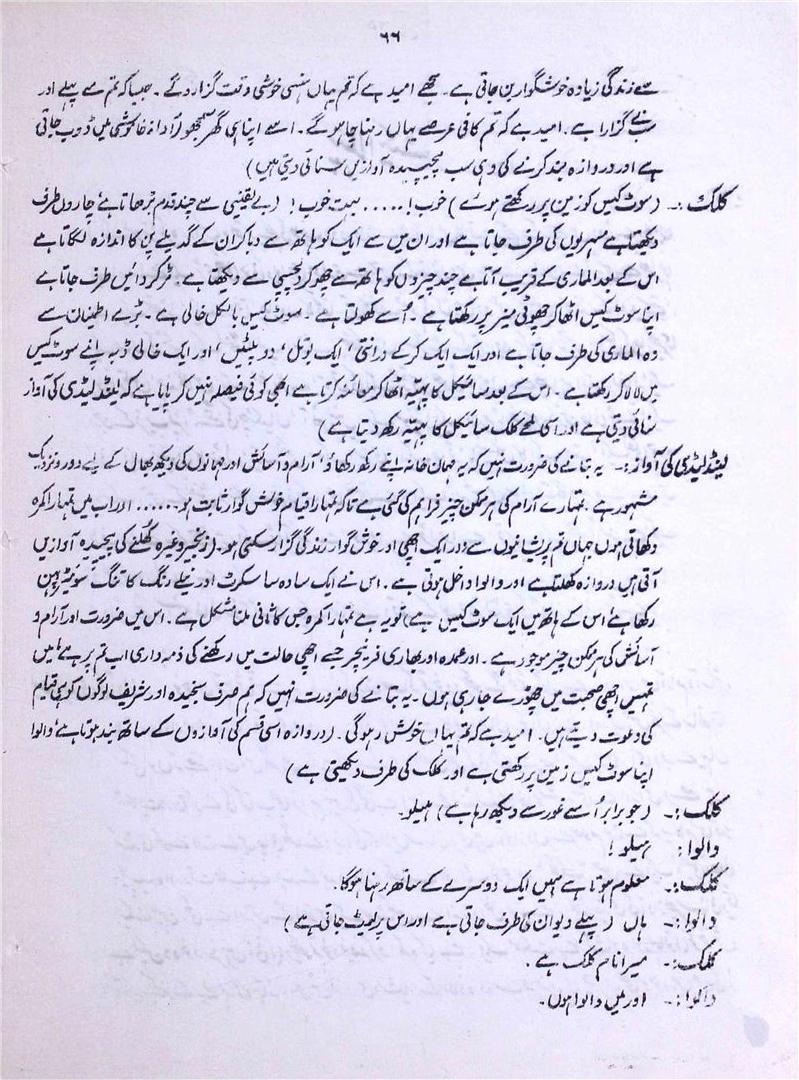 ۶۶
سے زندگی زیادہ خوشگوار بن جاتی ہے۔ مجھے امید ہے کہ تم یہاں ہنسی خوشی وقت گزار دگے۔ جیسا کہ تم سے پہلے اور
سب نے گزارا ہے۔ امید ہے کہ تم کافی عرصے یہاں رہنا چاہو گے۔ اسے اپنا ہی گھر سمجھو (آواز خاموشی میں ڈوب جاتی
ہے اور دروازہ بند کرنے کی وہی سب پیچیدہ آوازیں سنائی دیتی ہیں)
کلک:۔ (سوٹ کیس کو زمین پر رکھتے ہوئے) خوب!..... بہت خوب! (بے یقینی سے چند قدم بڑھاتا ہے، چاروں طرف
دیکھتا ہے مسہریوں کی طرف جاتا ہے اور ان میں سے ایک کو ہاتھ سے دبا کر ان کے گدیلے پن کا اندازہ لگاتا ہے
اس کے بعد الماری کے قریب آتا ہے چند چیزوں کو ہاتھ سے چھو کر دلچسپی سے دیکھتا ہے۔ مڑ کر دائیں طرف جاتا ہے
اپنا سوٹ کیس اٹھا کر چھوٹی میز پر رکھتا ہے۔ اُسے کھولتا ہے۔ سوٹ کیس بالکل خالی ہے۔ بڑے اطمینان سے
وہ الماری کی طرف جاتا ہے اور ایک ایک کر کے درانتی، ایک بوتل، دو پلیٹیں، اور ایک خالی ڈبہ اپنے سوٹ کیس
میں لا لا کر رکھتا ہے۔ اس کے بعد سائیکل کا پہیّہ اٹھا کر معائنہ کرتا ہے ابھی کوئی فیصلہ نہیں کر پایا ہے کہ لینڈ لیڈی کی آواز
سنائی دیتی ہے اور اسی لمحے کلک سائیکل کا پہیّہ رکھ دیتا ہے)
لینڈ لیڈی کی آواز:۔ یہ بتانے کی ضرورت نہیں کہ یہ مہمان خانہ اپنے رکھ رکھاؤ، آرام و آسائش اور مہمانوں کی دیکھ بھال کے لئے دور و نزدیک
مشہور ہے۔ تمہارے آرام کی ہر ممکن چیز فراہم کی گئی ہے تاکہ تمہارا قیام خوش گوار ثابت ہو...... اور اب میں تمہارا کمرہ
دکھاتی ہوں جہاں تم پریشانیوں سے دور ایک اچھی اور خوش گوار زندگی گزار سکتی ہو۔ (زنجیر وغیرہ کُھلنے کی پیچیدہ آوازیں
آتی ہیں دروازہ کھلتا ہے اور والوا داخل ہوتی ہے۔ اس نے ایک سادہ سا سکرٹ اور نیلے رنگ کا تنگ سوئیٹر پہن
رکھا ہے، اس کے ہاتھ میں ایک سوٹ کیس ہے) تو یہ ہے تمہارا کمرہ جس کا ثانی ملنا مشکل ہے۔ اس میں ضرورت اور آرام و
آسائش کی ہر ممکن چیز موجود ہے۔ اور عمدہ اور بھاری فرنیچر جسے اچھی حالت میں رکھنے کی ذمہ داری اب تم پر ہے، میں
تمہیں اچھی صحبت میں چھوڑے جا رہی ہوں۔ یہ بتانے کی ضرورت نہیں کہ ہم صرف سنجیدہ اور شریف لوگوں کو ہی قیام
کی دعوت دیتے ہیں۔ امید ہے کہ تم یہاں خوش رہو گی۔ (دروازہ اسی قسم کی آوازوں کے ساتھ بند ہوتا ہے، والوا
اپنا سوٹ کیس زمین پر رکھتی ہے اور کلک کی طرف دیکھتی ہے)
کلک:۔ (جو برابر اُسے غور سے دیکھ رہا ہے) ہیلو۔
والوا: ہیلو!
کلک:۔ معلوم ہوتا ہے ہمیں ایک دوسرے کے ساتھ رہنا ہوگا۔
والوا:۔ ہاں (پہلے دیوان کی طرف جاتی ہے اور اس پر لیٹ جاتی ہے)
کلک:۔ میرا نام کلک ہے۔
والوا:۔ اور میں والوا ہوں۔